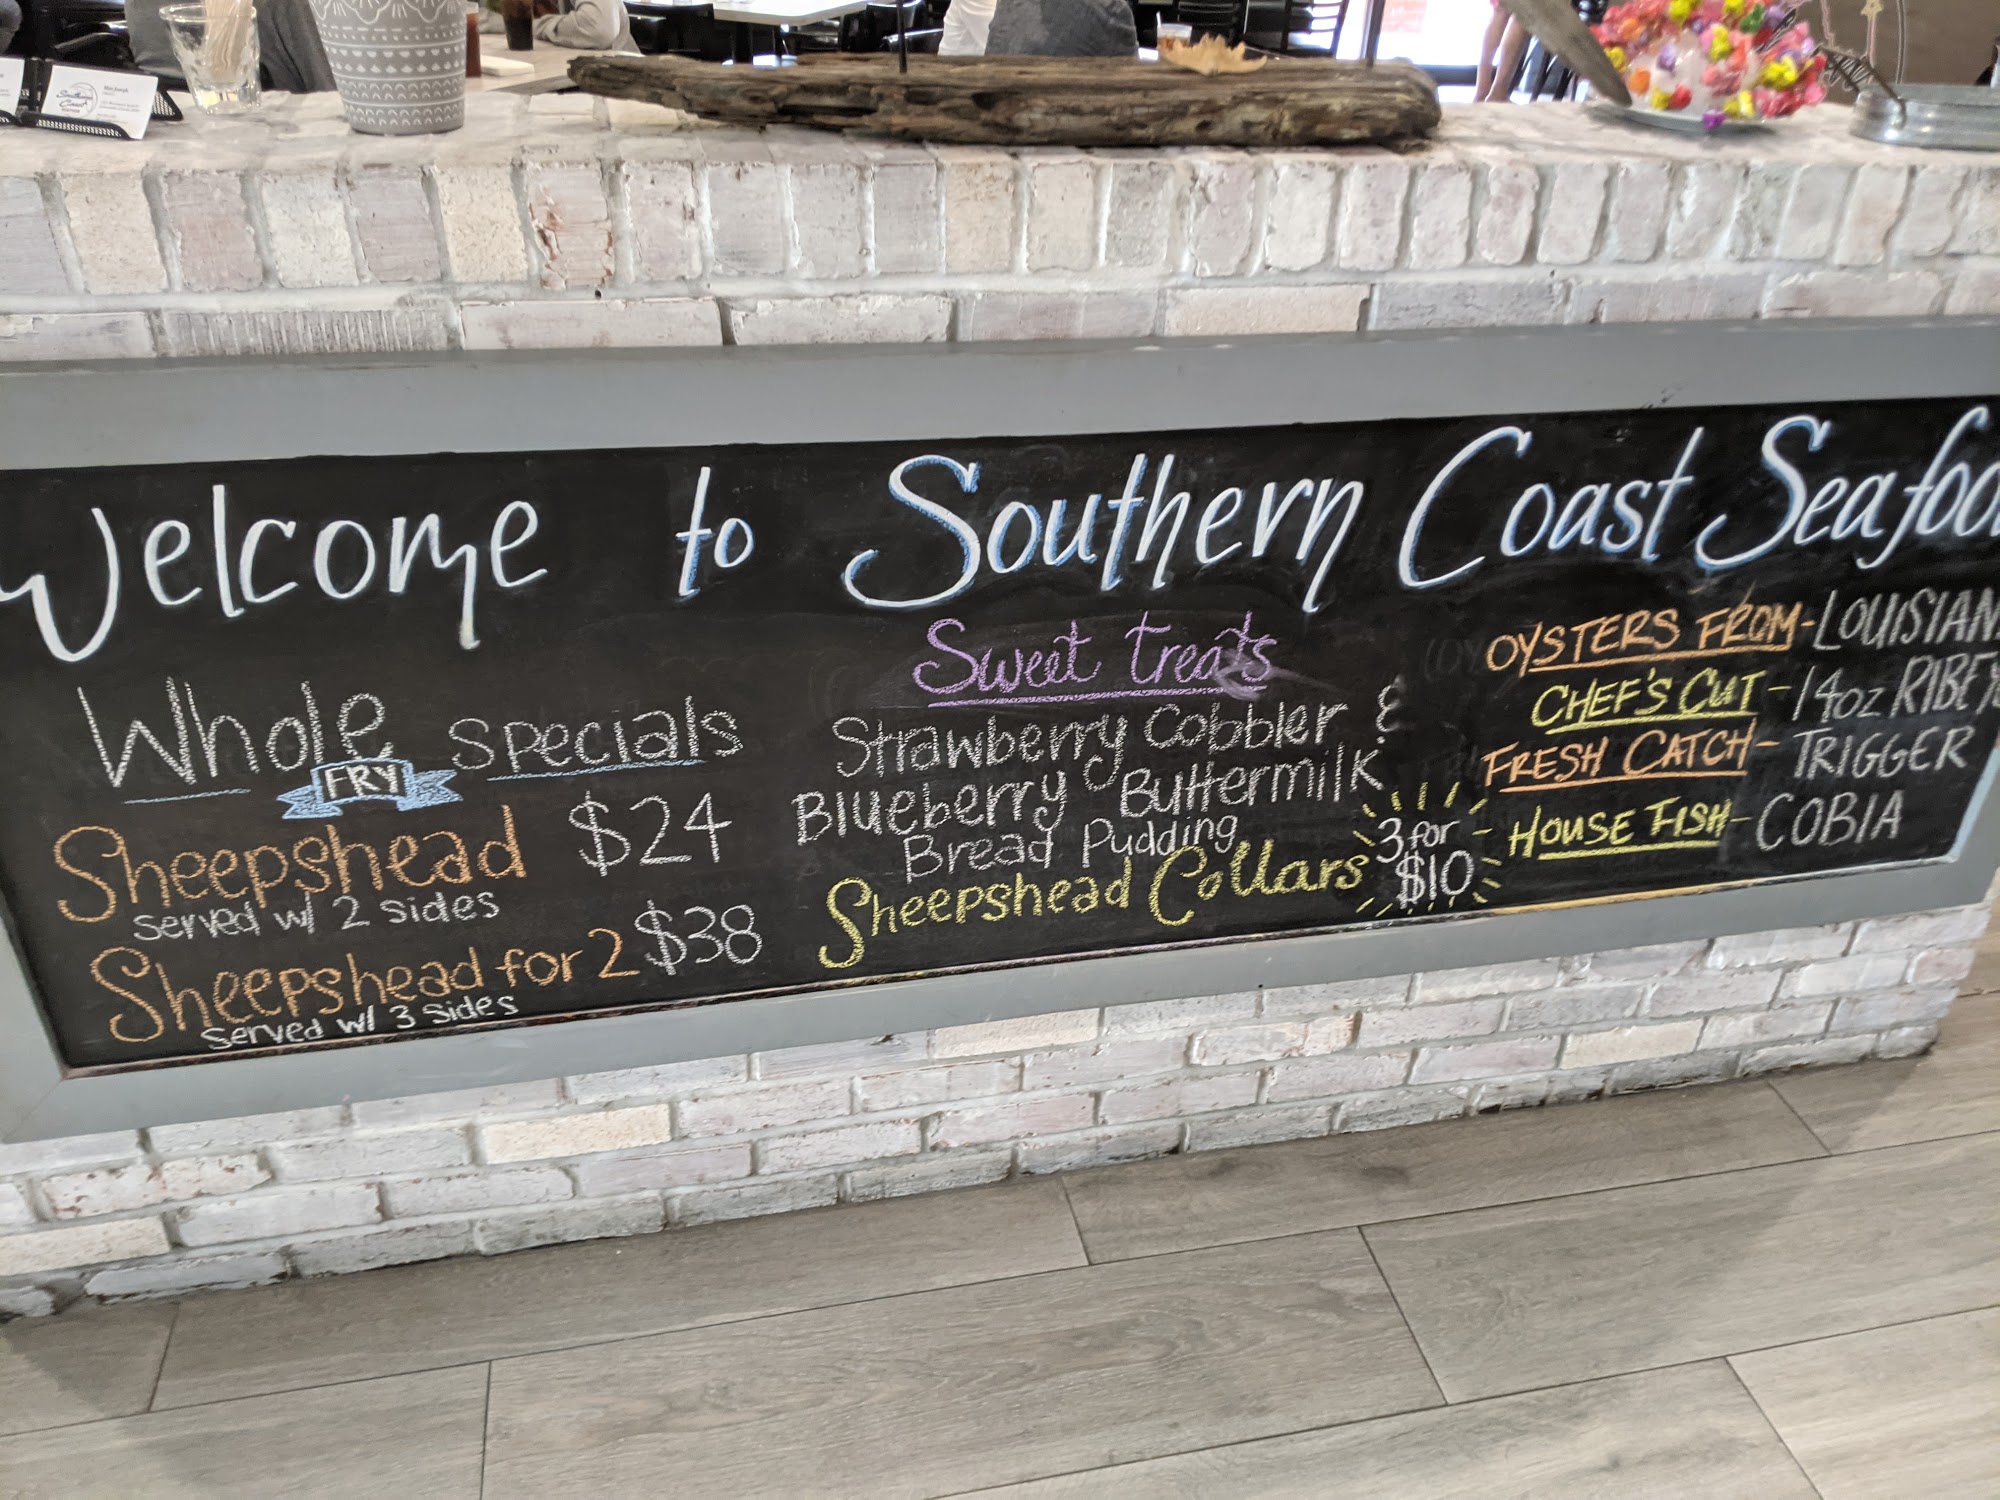 Welcome to Southern Coast Seafoo
Whole FRY specials
Sheepshead $24
served w/ 2 sides
Sheepshead for 2 $38
served w/ 3 sides
Sweet treats
Strawberry Cobbler &
Blueberry Buttermilk
Bread Pudding
Sheepshead Collars 3 for $10
OYSTERS FROM - LOUISIAN
CHEF'S CUT - 14oz RIBEY
FRESH CATCH - TRIGGER
- HOUSE FISH - COBIA
Southern
Coast